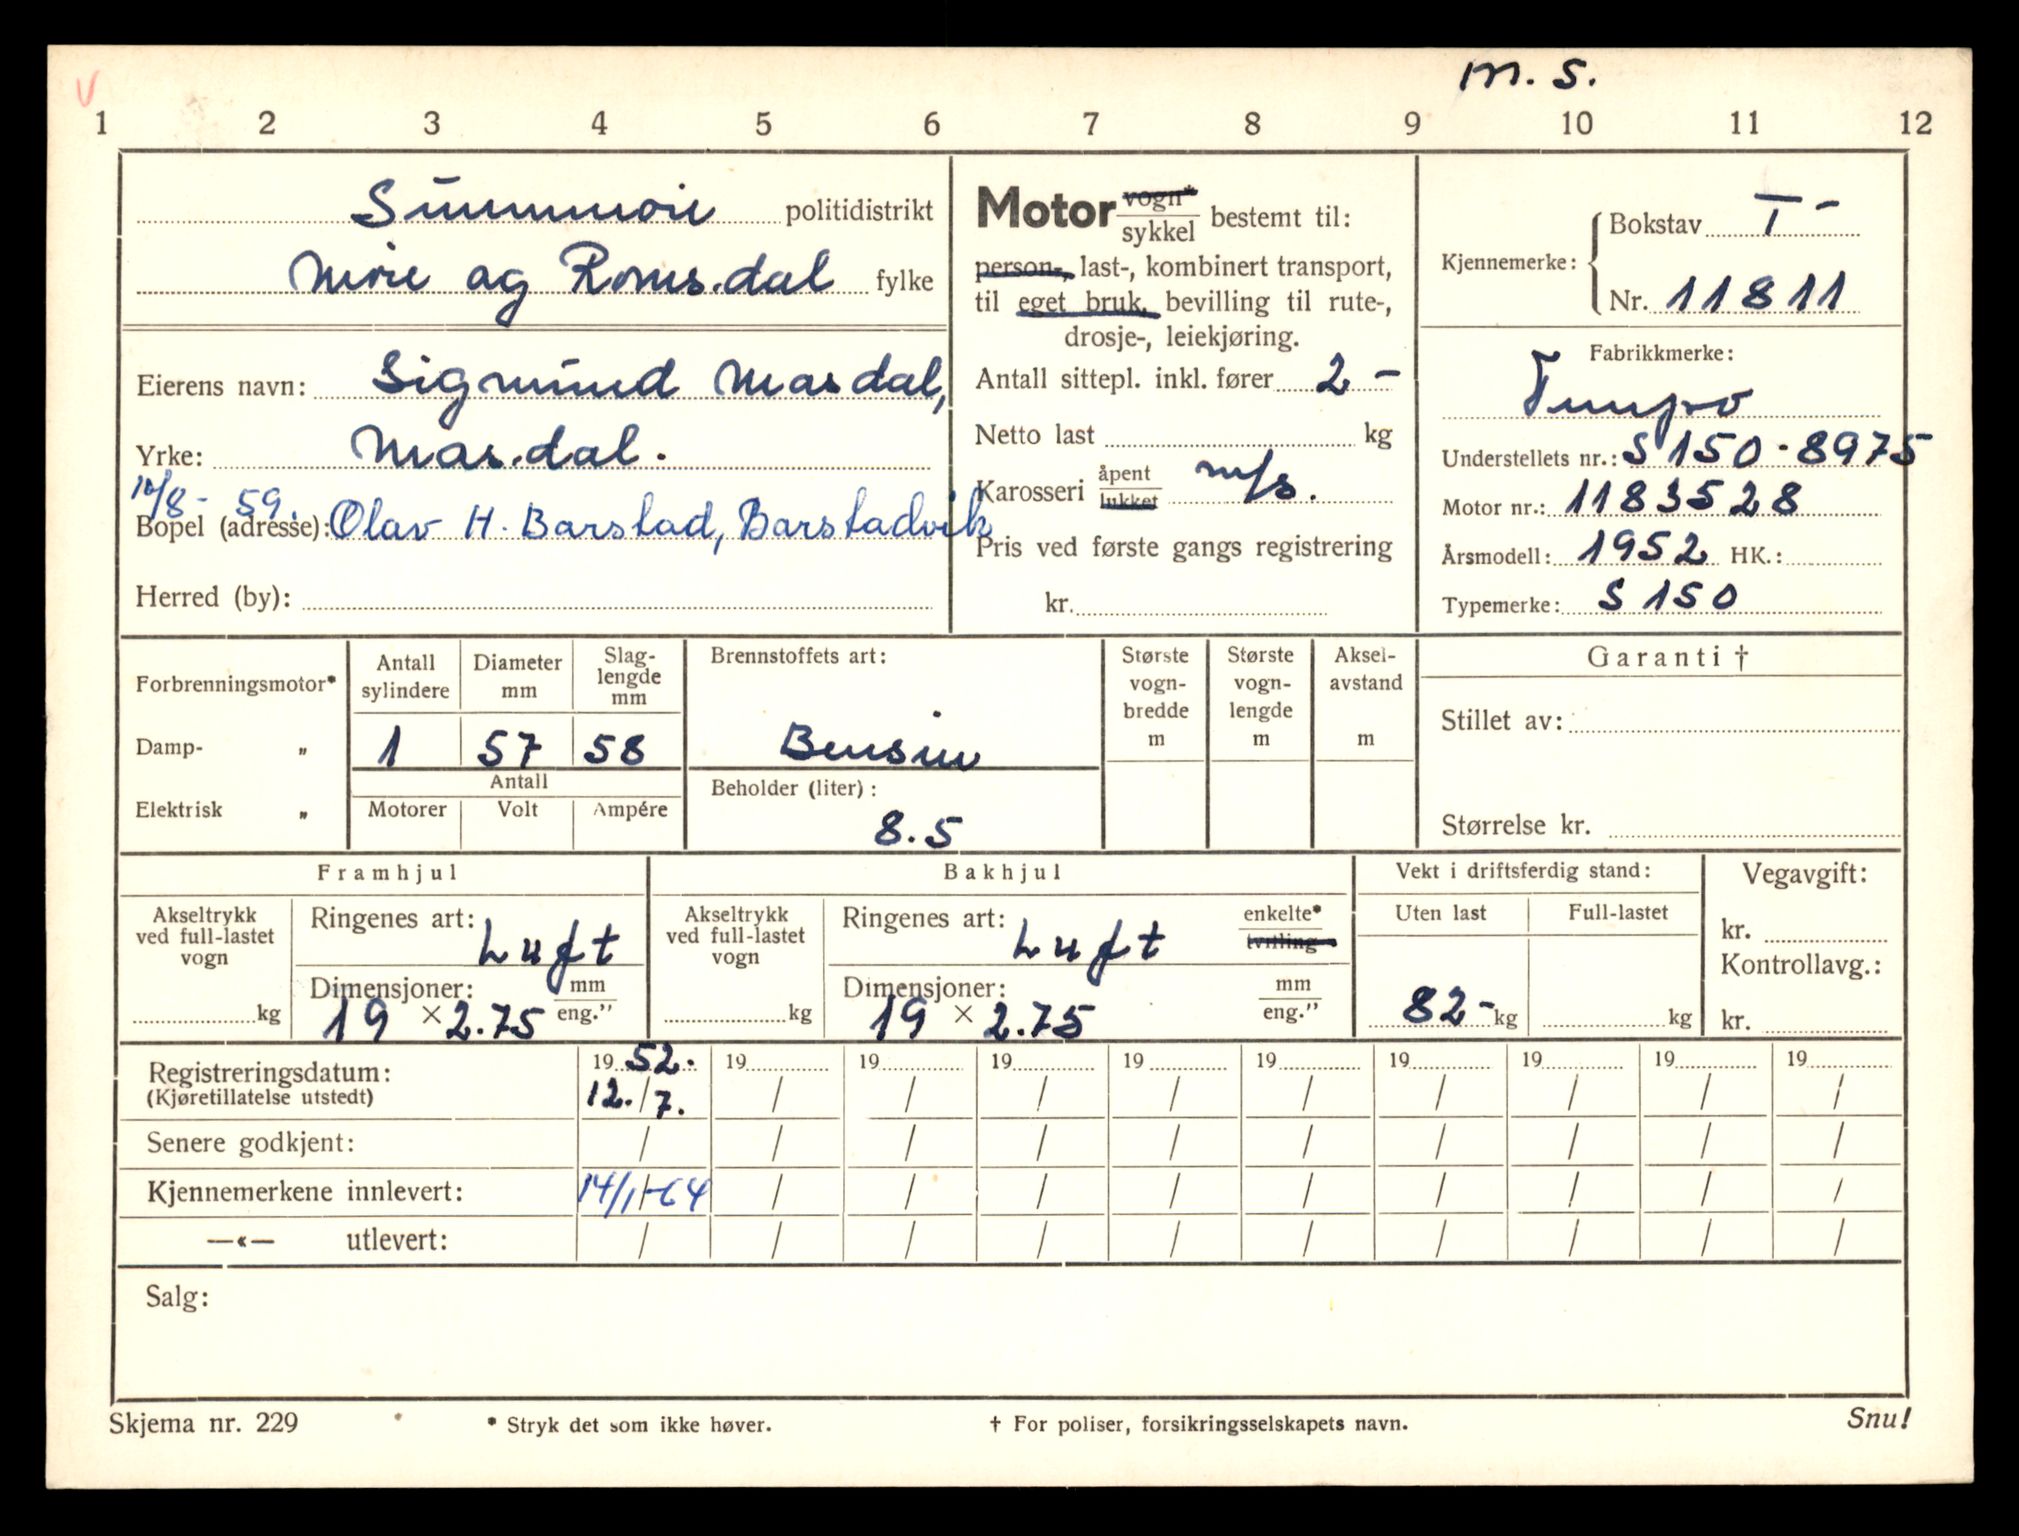 V
m. s.
1 2 3 4 5 6 7 8 9 10 11 12
Sunnmøre politidistrikt
Møre og Romsdal fylke
Eierens navn: Sigmund Masdal,
Yrke: Masdal.
10/8- 59.
Bopel (adresse): Olav H. Barstad, Barstadvik
Herred (by):
Motor vogn* / sykkel bestemt til:
person-, last-, kombinert transport,
til eget bruk, bevilling til rute-,
drosje-, leiekjøring.
Antall sittepl. inkl. fører 2 -
Netto last kg
Karosseri åpent / lukket m/s.
Pris ved første gangs registrering
kr.
Kjennemerke: { Bokstav T -
Nr. 11811
Fabrikkmerke:
Tempo
Understellets nr.: S 150 - 8975
Motor nr.: 1183528
Årsmodell: 1952 HK.:
Typemerke: S 150
Forbrenningsmotor*
Damp- „
Elektrisk „
Antall sylindere
Diameter mm
Slag-
lengde
mm
1 57 58
Antall
Motorer Volt Ampére
Brennstoffets art:
Bensin
Beholder (liter):
8.5
Største
vogn-
bredde
m
Største
vogn-
lengde
m
Aksel-
avstand
m
Garanti †
Stillet av:
Størrelse kr.
Framhjul
Akseltrykk
ved full-lastet
vogn
kg
Ringenes art: Luft
Dimensjoner: mm / eng.”
19 × 2.75
Bakhjul
Akseltrykk
ved full-lastet
vogn
kg
Ringenes art: Luft enkelte* / tvilling
Dimensjoner: mm / eng.”
19 × 2.75
Vekt i driftsferdig stand:
Uten last Full-lastet
82- kg kg
Vegavgift:
kr.
Kontrollavg.:
kr.
Registreringsdatum: 19 52. 19 19 19 19 19 19 19 19 19
(Kjøretillatelse utstedt) 12. / 7. / / / / / / / / /
Senere godkjent: / / / / / / / / / /
Kjennemerkene innlevert: 14/1-64 / / / / / / / / /
—«— utlevert: / / / / / / / / / /
Salg:
Skjema nr. 229 * Stryk det som ikke høver. † For poliser, forsikringsselskapets navn. Snu!